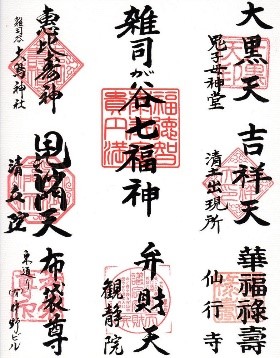 大黒天
鬼子母神堂
吉祥天
清土出現所
華福禄壽
仙行寺
雑司が谷七福神
弁財天
観静院
恵比寿神
雑司谷大鳥神社
毘沙門天
清立院
布袋尊
東通り